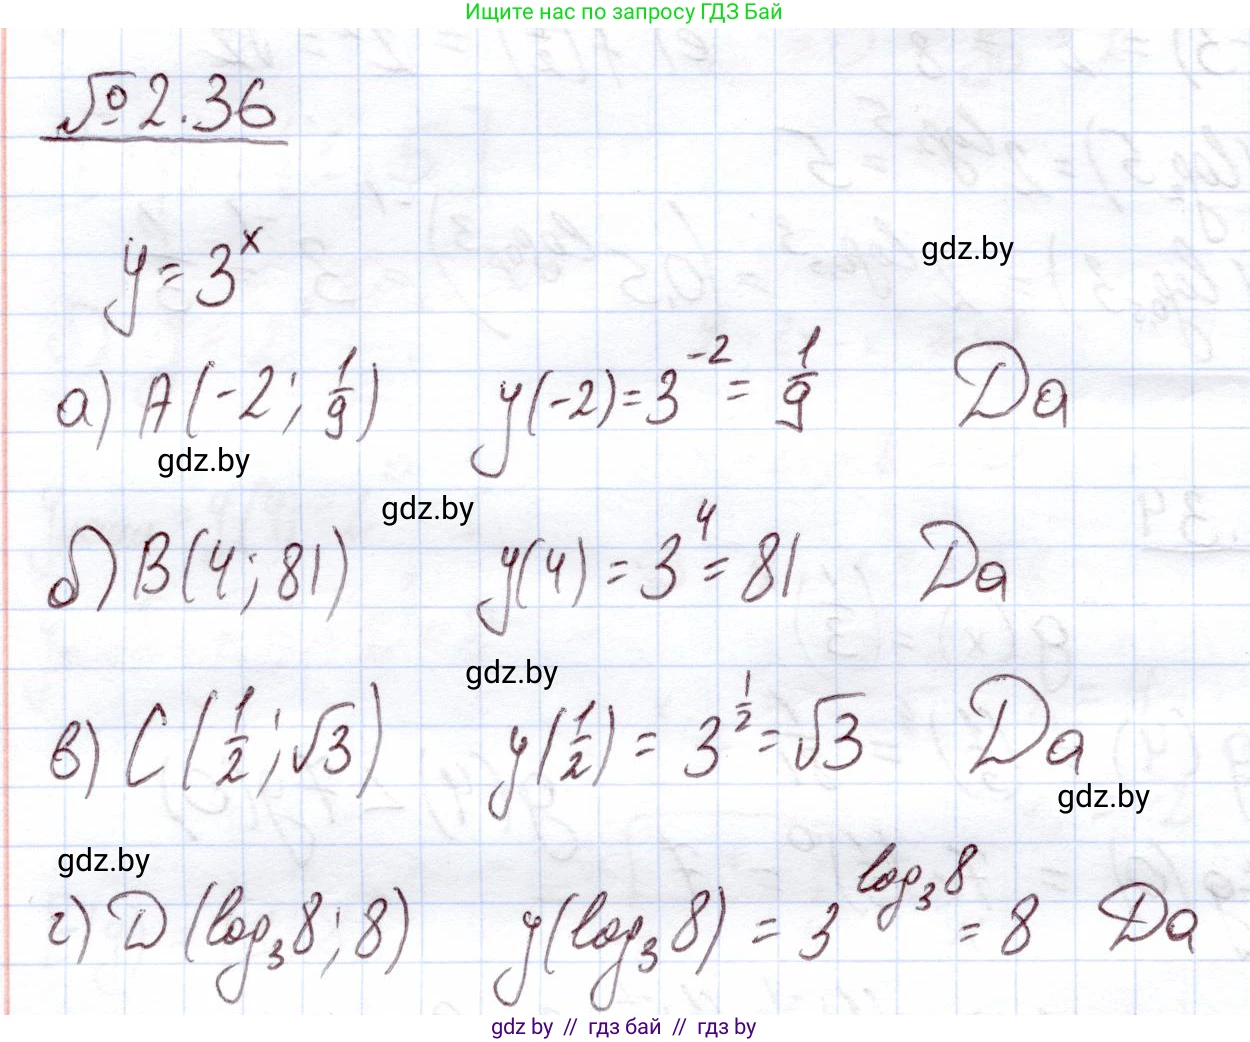 Ищите нас по запросу ГДЗ Бай
№2.36
y = 3^x
gdz.by
а) A(-2; 1/9) y(-2) = 3^-2 = 1/9 Да
gdz.by
gdz.by
б) B(4; 81) y(4) = 3^4 = 81 Да
gdz.by
в) C(1/2; √3) y(1/2) = 3^1/2 = √3 Да
gdz.by
gdz.by
г) D(log₃8; 8) y(log₃8) = 3^log₃8 = 8 Да
gdz by // гдз бай // гдз by